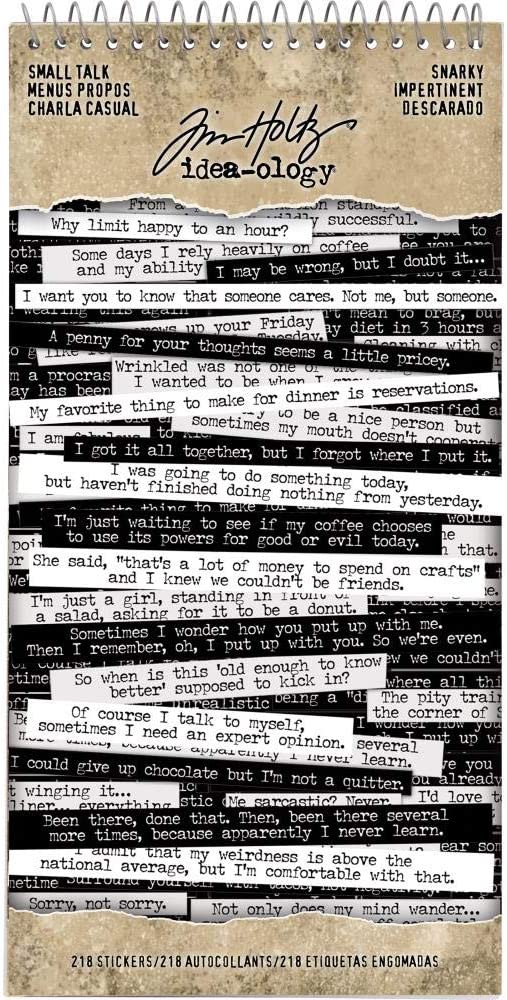 SMALL TALK
MENUS PROPOS
CHARLA CASUAL
SNARKY
IMPERTINENT
DESCARADO
Tim Holtz
idea-ology
From a
successful.
Why limit happy to an hour?
Some days I rely heavily on coffee
and my ability
I may be wrong, but I doubt it...
I want you to know that someone cares. Not me, but someone.
wearing this again
mean to brag, but
up your Friday
diet in 3 hours
A penny for your thoughts seems a little pricey.
Wrinkled was not one
I wanted to be when I
a procras
My favorite thing to make for dinner is reservations.
to be a nice person but
sometimes my mouth doesn't cooperate
I am
I got it all together, but I forgot where I put it.
I was going to do something today,
but haven't finished doing nothing from yesterday.
would
I'm just waiting to see if my coffee chooses
to use its powers for good or evil today.
that.
She said, "that's a lot of money to spend on crafts"
and I knew we couldn't be friends.
We'
I'm just a girl, standing in front of
a salad, asking for it to be a donut.
Sometimes I wonder how you put up with me.
Then I remember, oh, I put up with you. So we're even.
we couldn't
So when is this 'old enough to know
better' supposed to kick in?
where all thi
unrealistic
being a "di
The pity train
the corner of
Of course I talk to myself,
sometimes I need an expert opinion.
I wonder how you
put up wi
several
more times, because apparently I never learn.
I could give up chocolate but I'm not a quitter.
already
winging it...
everything
Me sarcastic? Never.
I'd love t
Been there, done that. Then, been there several
more times, because apparently I never learn.
I admit that my weirdness is above the
national average, but I'm comfortable with that.
surround yourself with tacos, not negativity.
Sorry, not sorry.
Not only does my mind wander...
218 STICKERS/218 AUTOCOLLANTS/218 ETIQUETAS ENGOMADAS